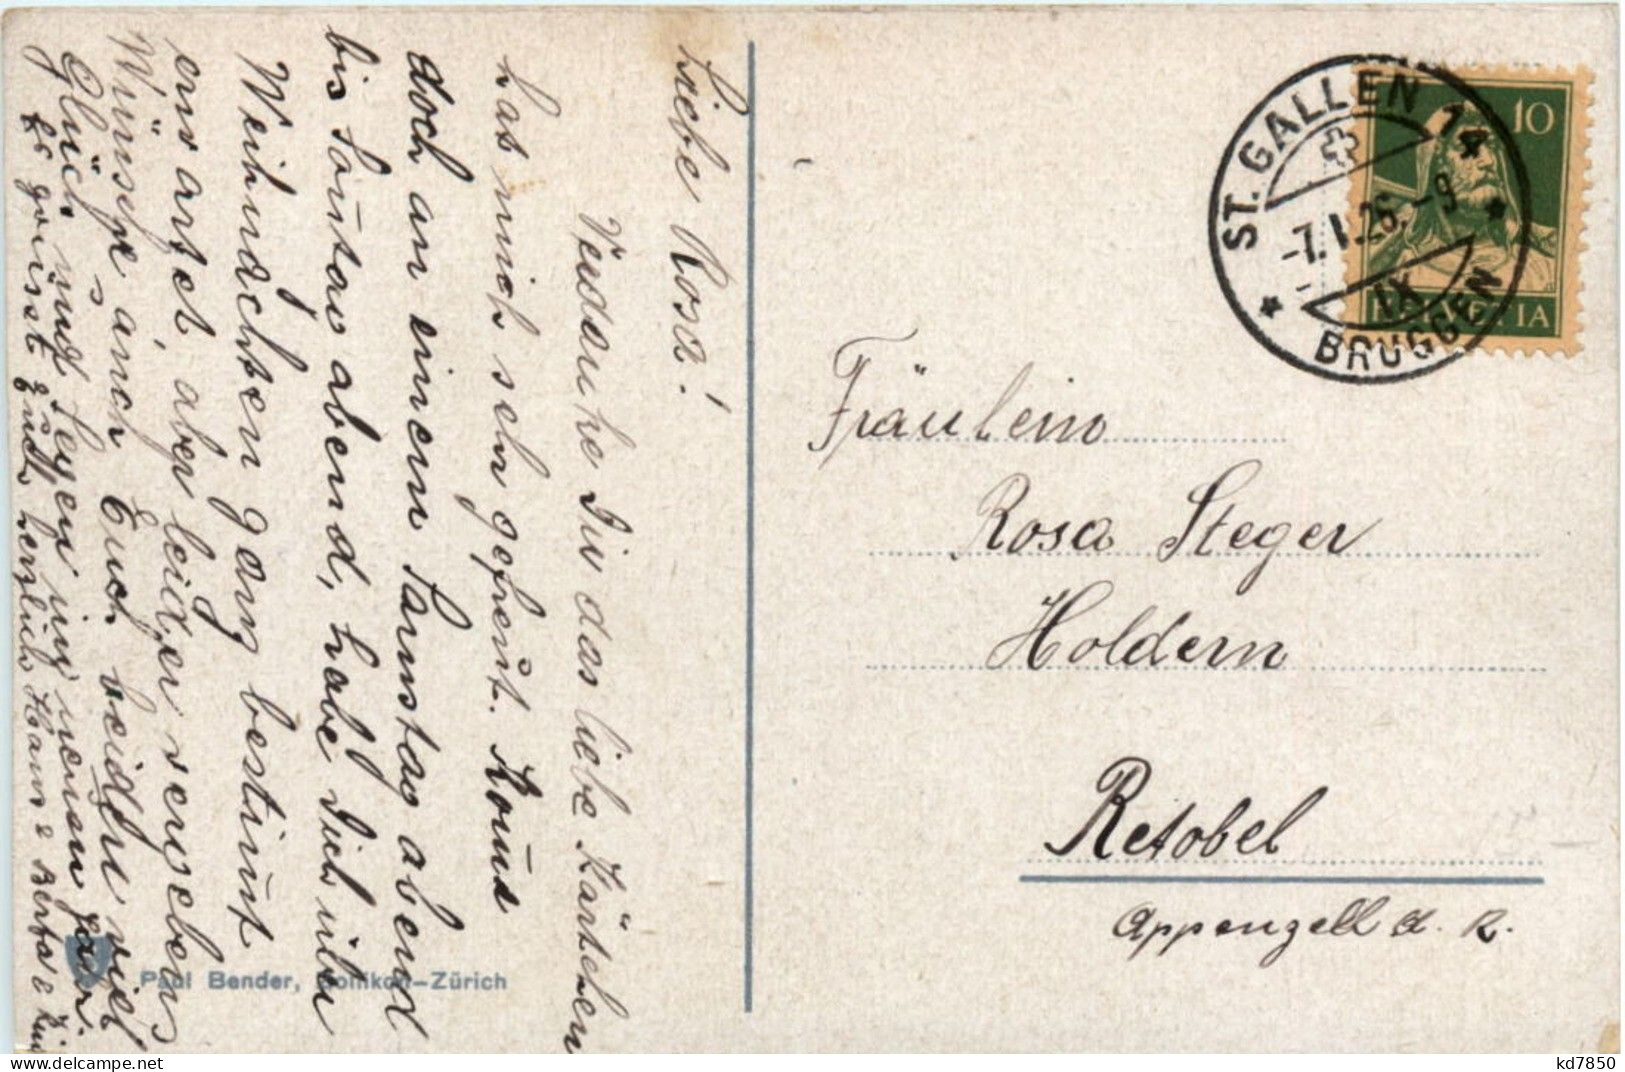 Liebe Rosa!
Verdanke Dir das liebe Kärtchen
hat mich sehr gefreut. Kom̄e
doch an einem Samstag abend
bis Son̄tag abend, habe Dich über
Weihnachten ganz bestim̄t
erwartet, aber leider vergebens
Wünsche auch Euch beiden viel
Glück und Segen im neuen Jahr.
Es grüsst Euch herzlich & Berta &
Paul Bender, Zollikon-Zürich
ST. GALLEN 14
-7.I.26.-9
IX
BRUGGEN
10
HELVETIA
Fräulein
Rosa Steger
Holdern
Retobel
Appenzell A. R.
kd7850